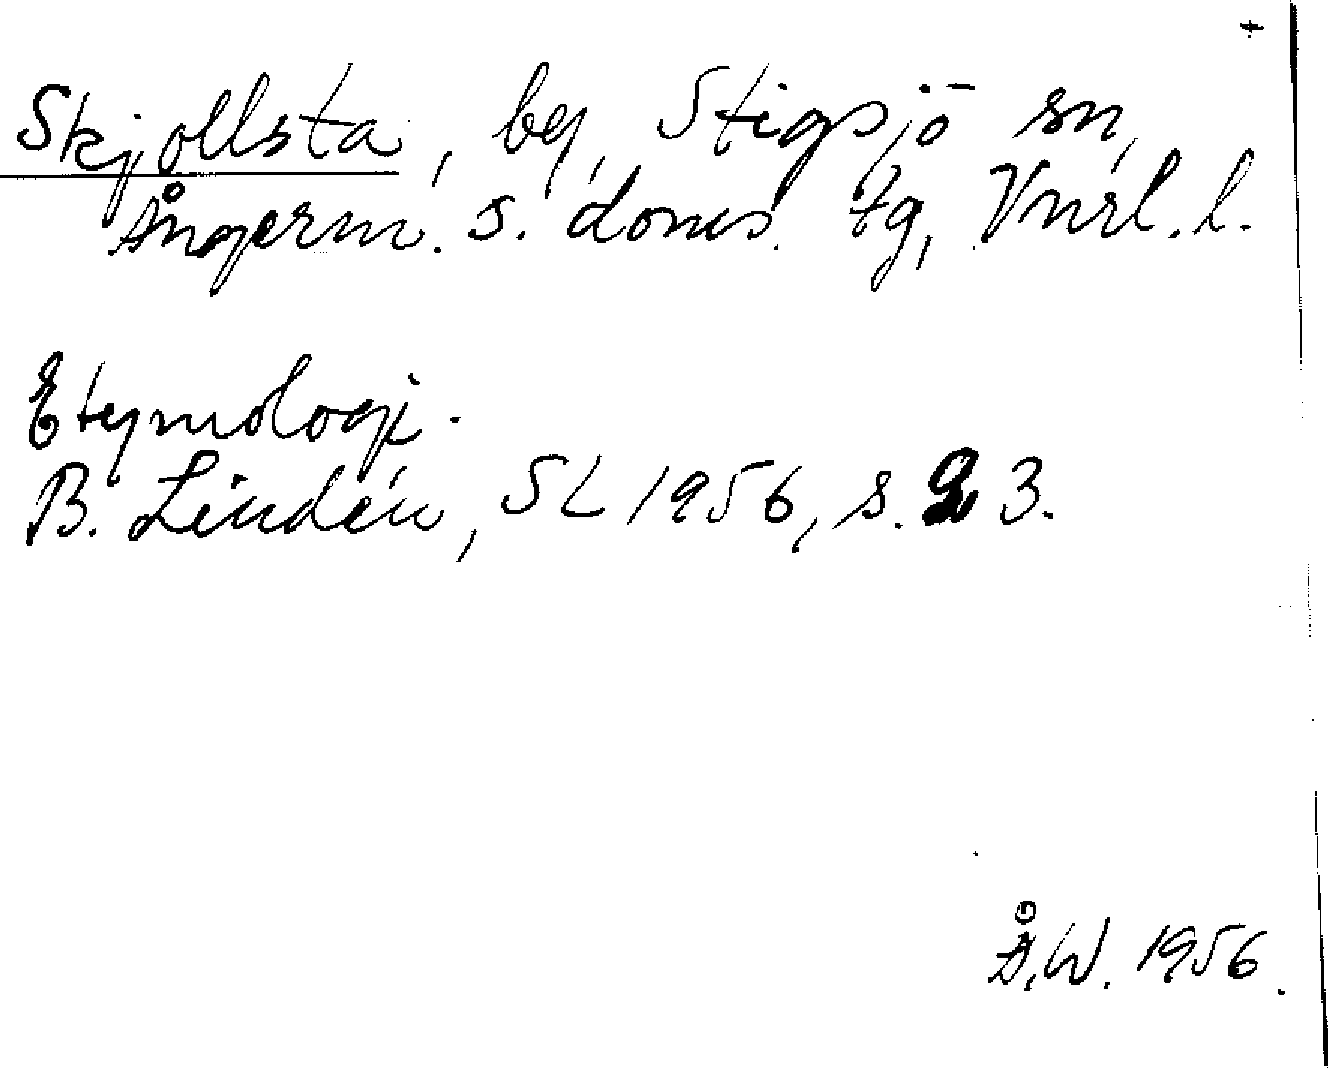 Skjollsta, by, Stigsjö sn,
Ångerm. s. doms. tg, Vnrl. l.
Etymologi.
B. Lindén, SL 1956, s. 23.
Å.W. 1956.